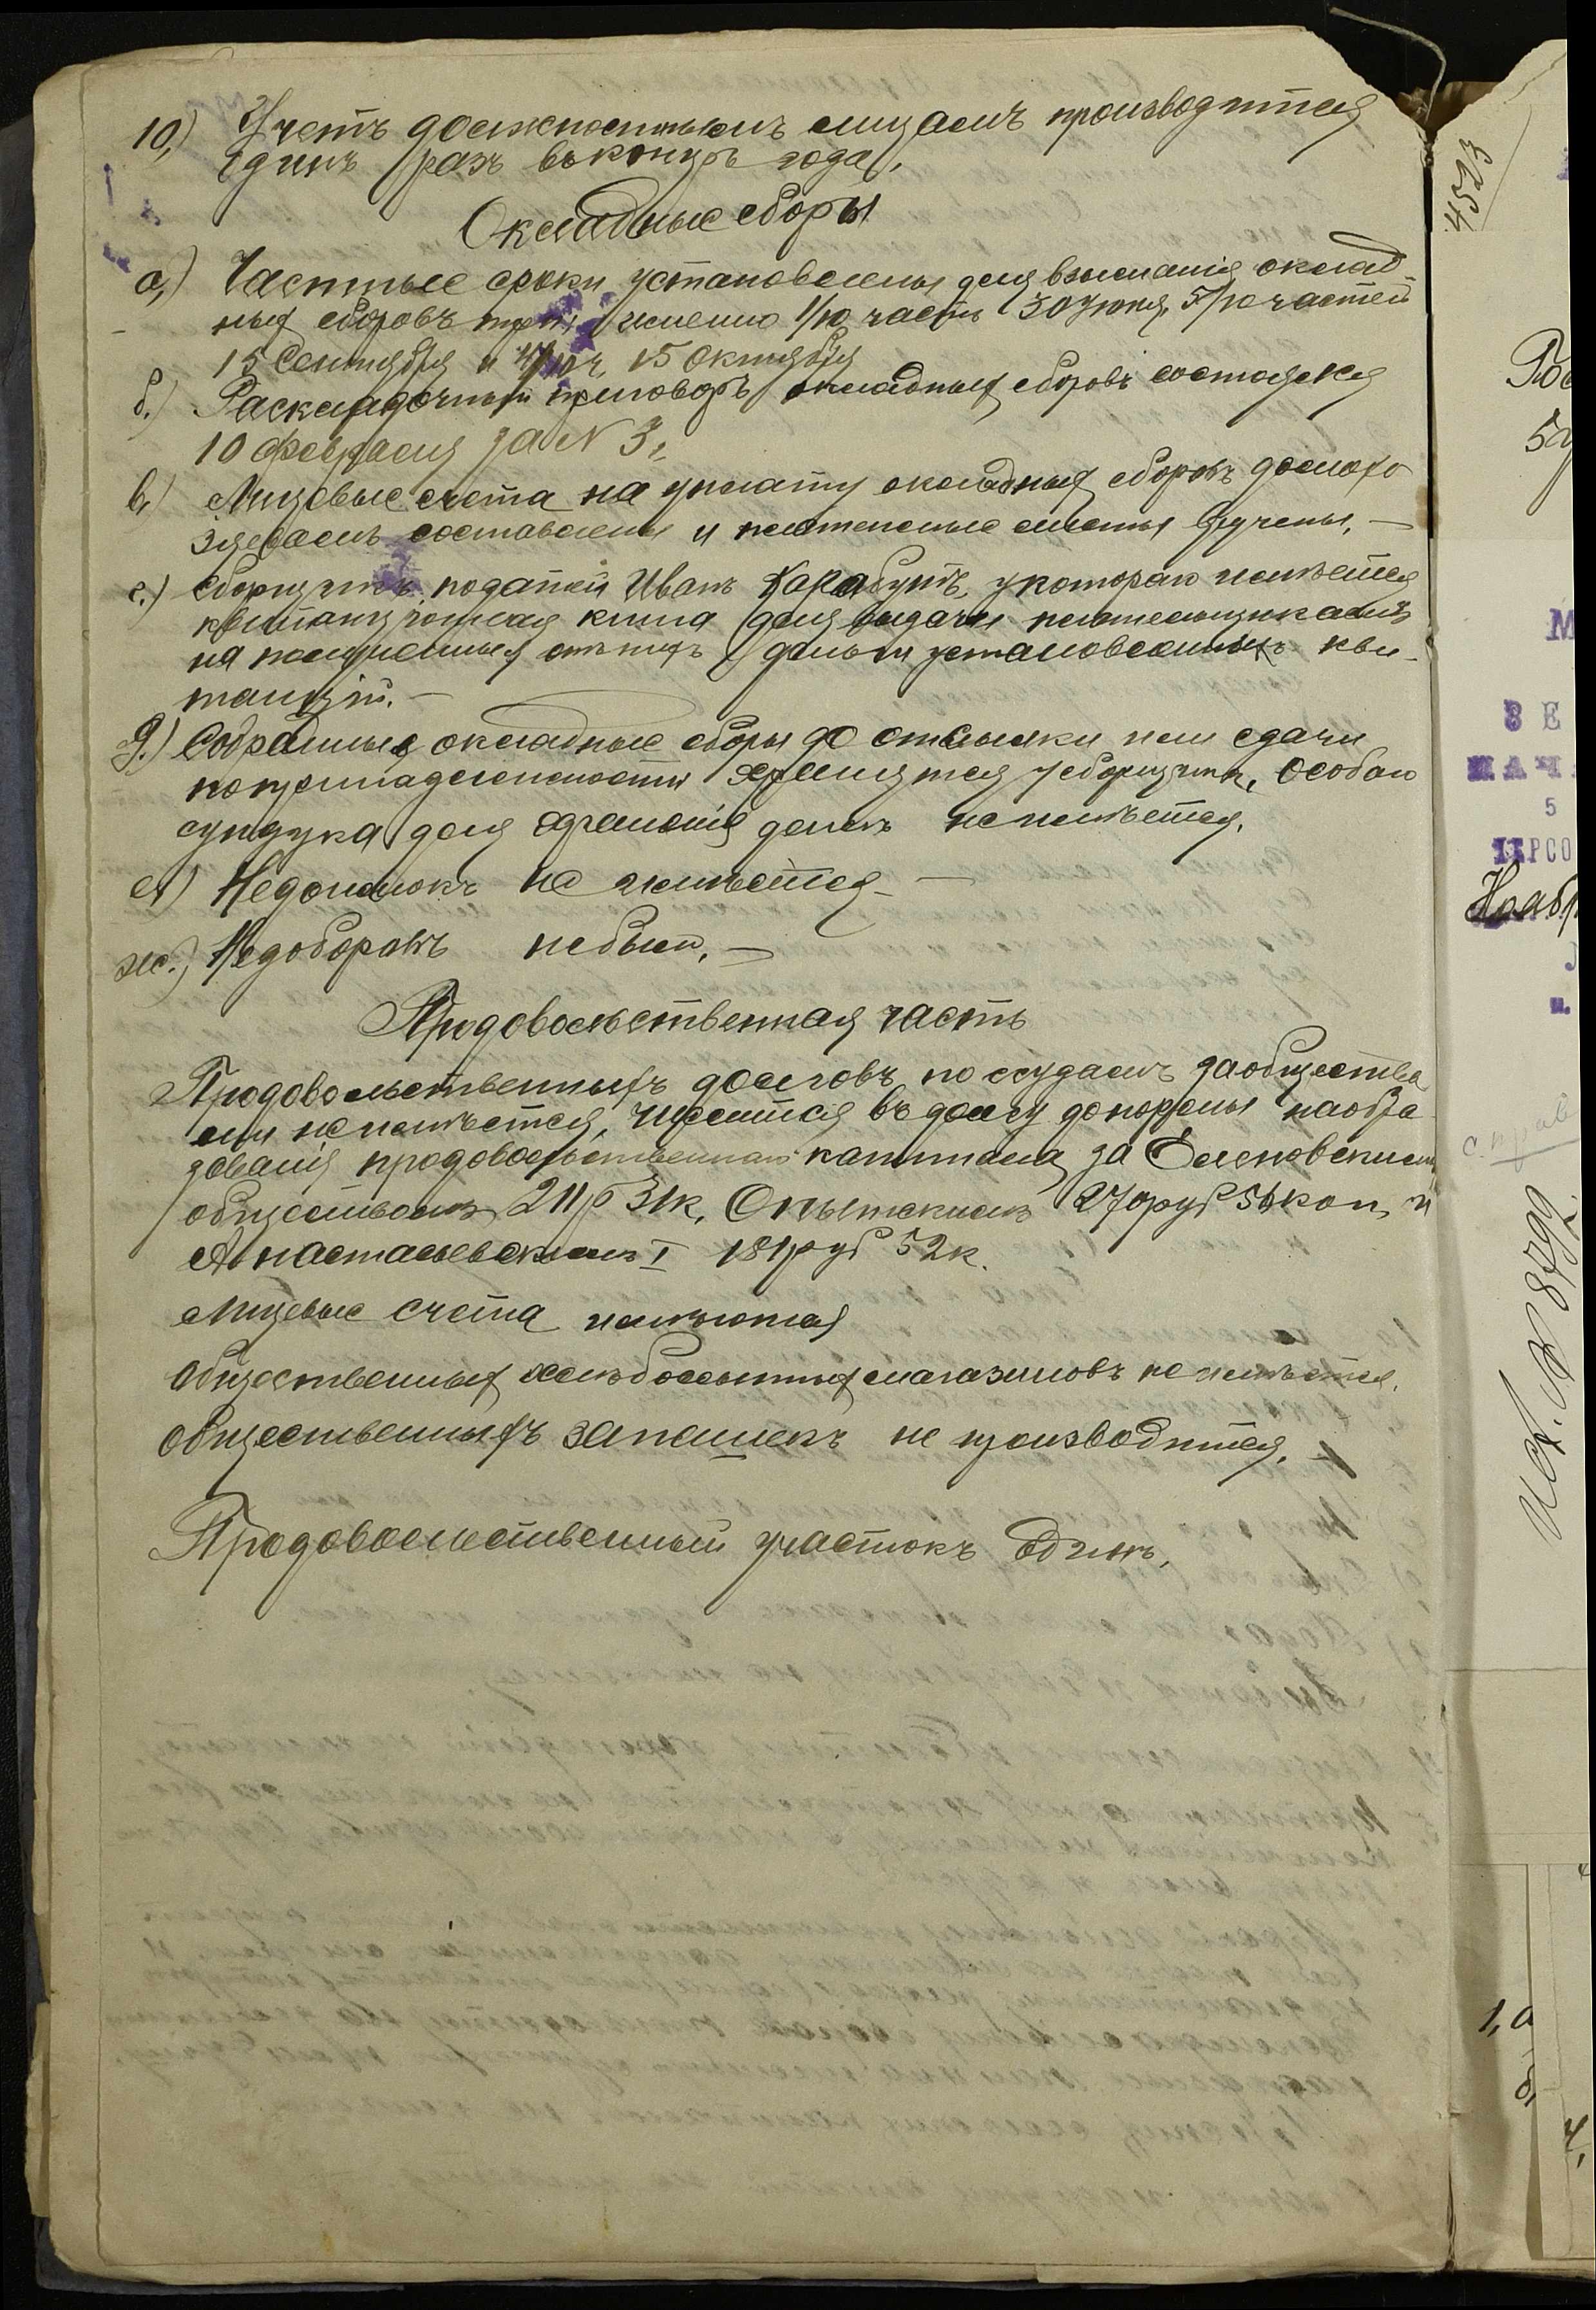 10,) Учетъ должностнымъ лицамъ производится
одинъ разъ въ концѣ года,
Окладные сборы
а,) Частные сроки установлены для взысканія оклад-
ныхъ сборовъ три: именно 1/10 часть 30 Іюня, 5/10 частей
15 Сентября и 4/10 ч. 15 Октября
б.) Раскладочный приговоръ окладныхъ сборовъ состоялся
10 февраля за N 3,
в,) Лицовые счета на уплату окладныхъ сборовъ домохо
зяевамъ составлены и платежные листы вручены. —
г.) Сборщикъ податей Иванъ Карабутъ, у котораго имѣется
квитанціонная книга для выдачи плательщикамъ
на полученныя отъ нихъ деньги установленныхъ кви-
танцій. —
д.) Собранные окладные сборы до отсылки или сдачи
по принадлежности хранятся у сборщика, особаго
сундука для храненія денегъ не имѣется.
е) Недоимокъ не имѣется —
ж.) Недоборовъ не было. —
Продовольственная часть
Продовольственныхъ долговъ по ссудамъ за общества
ми не имѣется, числится въ долгу до нормы на обра
зованія продовольственнаго капитала за Еленовскимъ
обществомъ 211 р 31 к, Опытнскимъ 270 руб 54 коп, и
Анастасьевскимъ I 181 руб 52 к.
Лицевые счета имѣются
Общественныхъ хлѣбозапасныхъ магазиновъ не имѣется.
Общественныхъ запашекъ не производится. —
Продовольственный участокъ Одинъ,
4523
Ноябр
Исх. № 8799
1, а
б,
4,